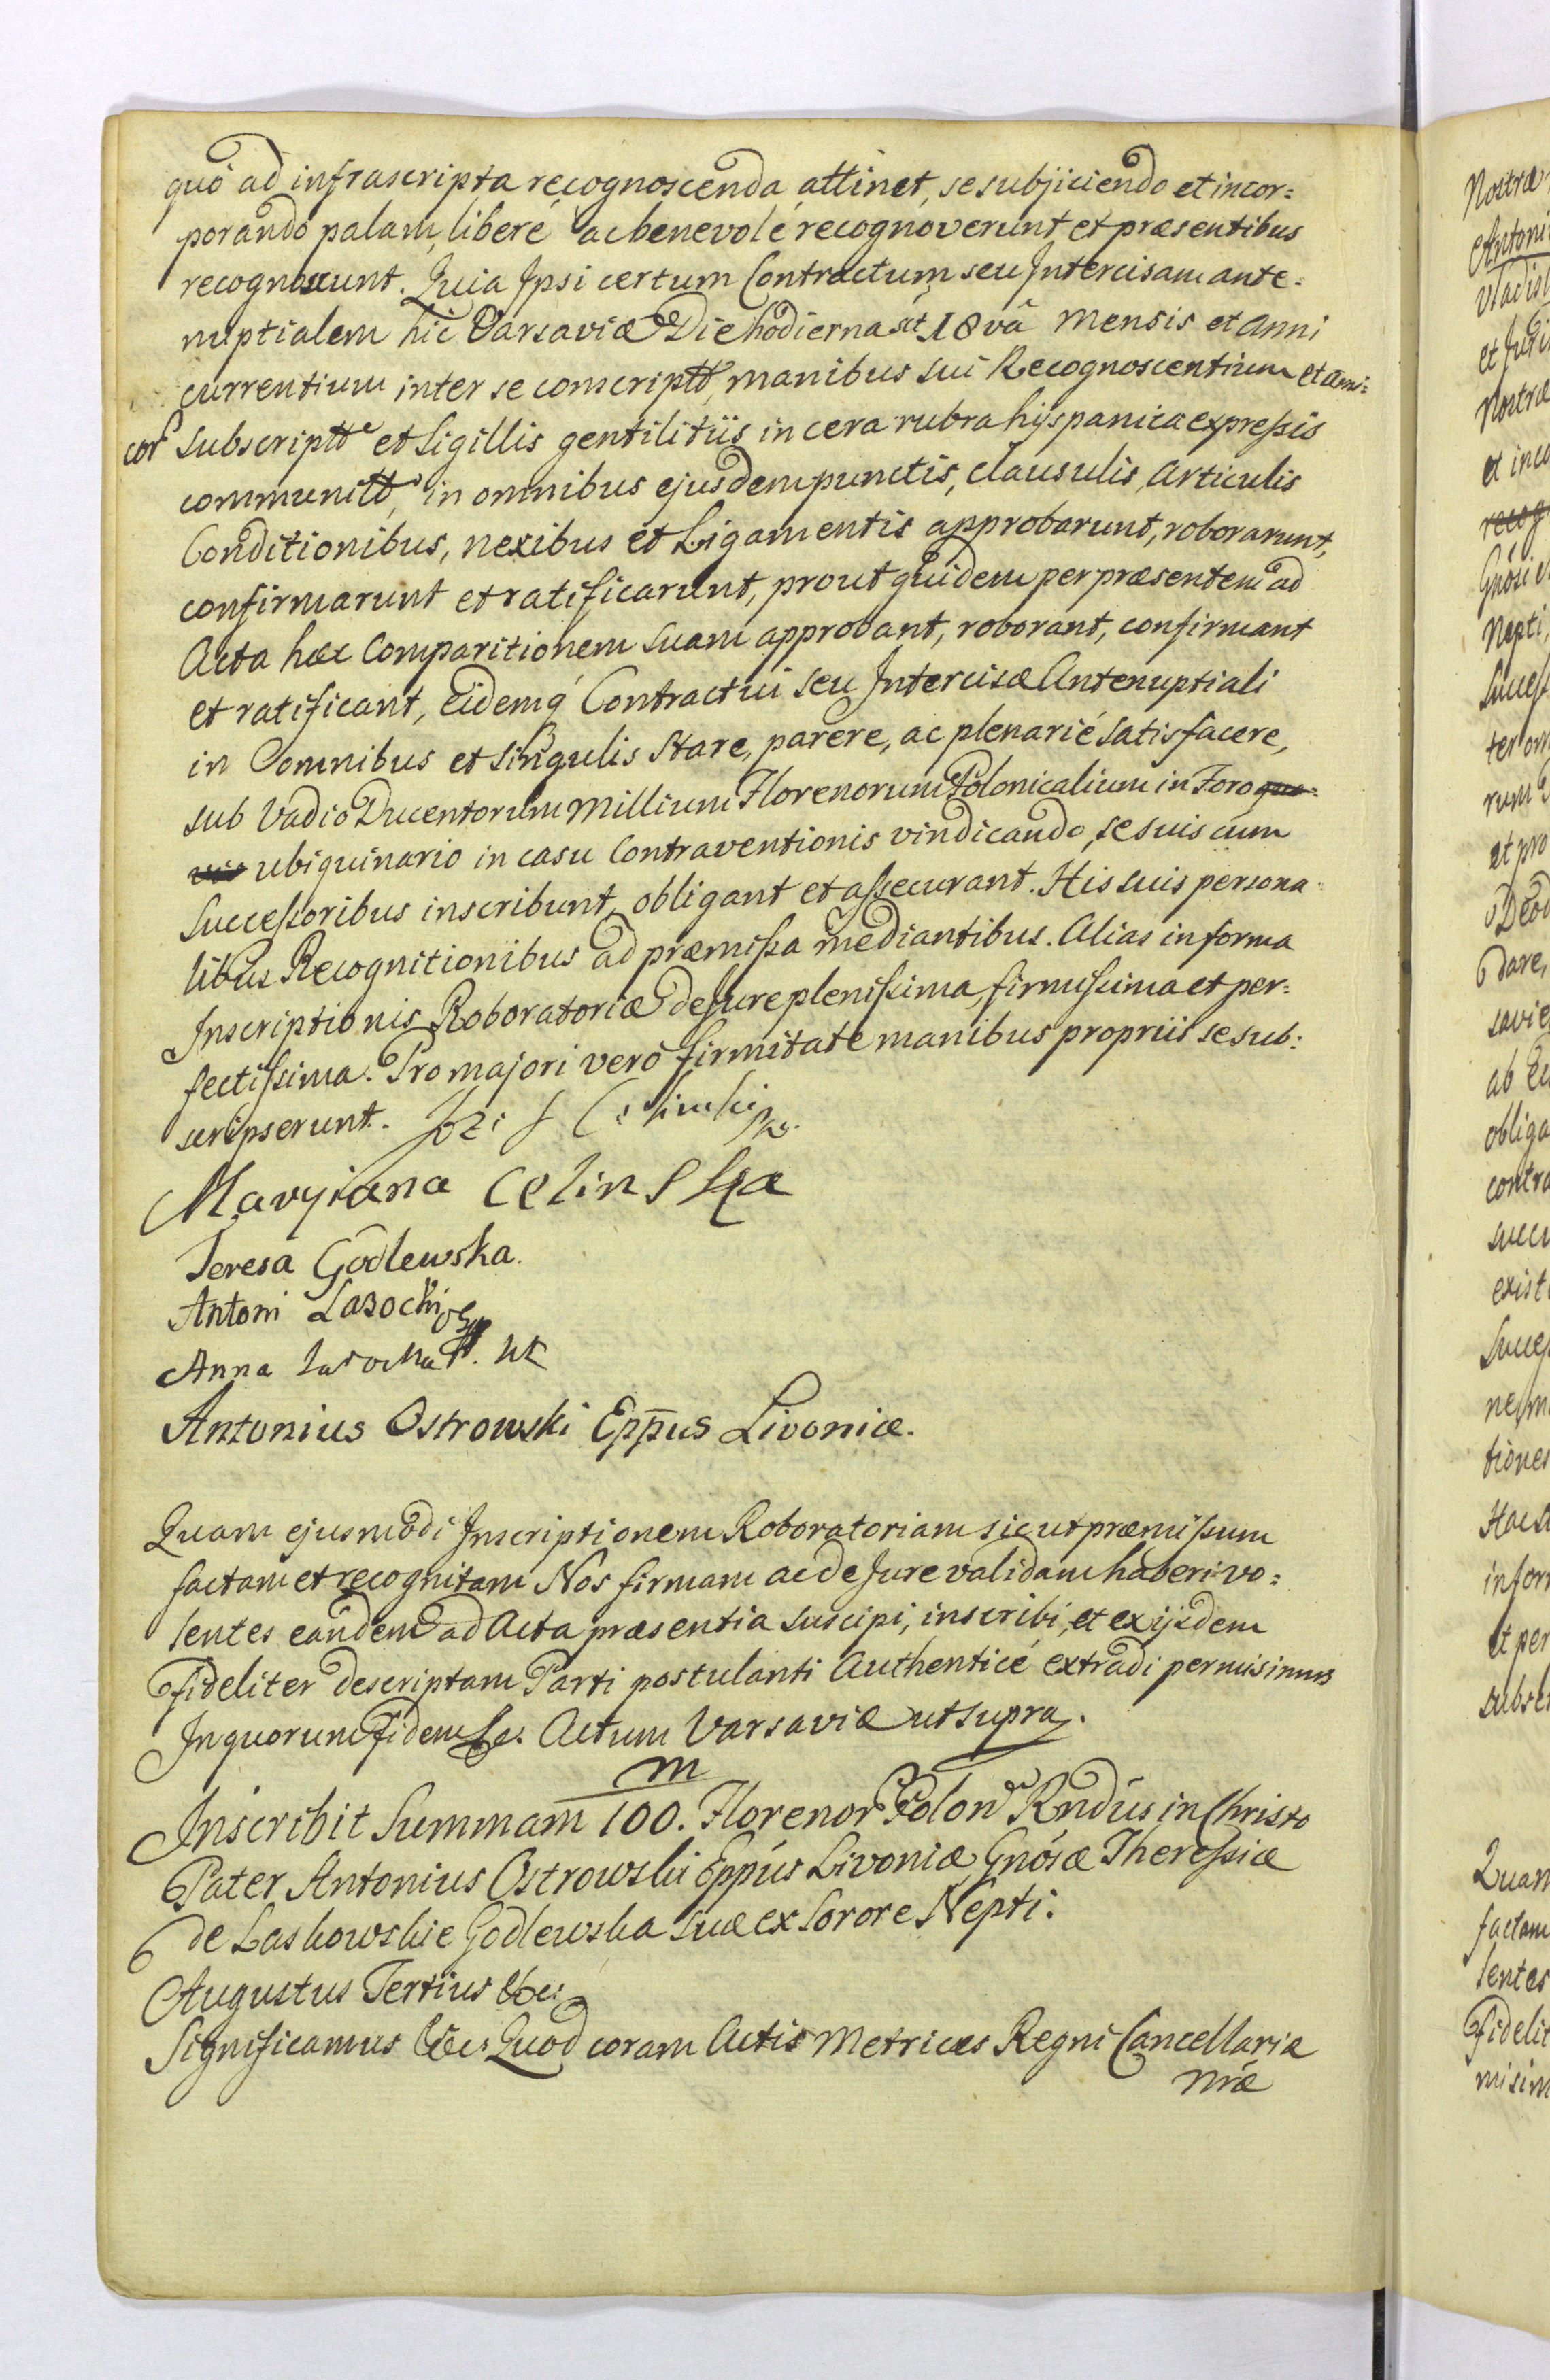 quo ad infrascripta recognoscenda attinet, se subjiciendo et incor=
porando palam, liberé ac benevolé recognoverunt et præsentibus
recognoscunt. Quia Ipsi certum Contractum seu Intercisam ante=
nuptialem hic Varsaviæ Die hodierna sct 18vâ Mensis et Anni
currentium inter se conscriptt, manibus sui Recognoscentium et Ami=
cor subscriptt et Sigillis gentilitiis in cera rubra hyspanica expressis
communitt, in omnibus ejusdem punctis, clausulis, Articulis
Conditionibus, nexibus et Ligamentis approbarunt, roborarunt,
confirmarunt et ratificarunt, prout quidem per præsentem ad
Acta hæc Comparitionem suam approbant, roborant, confirmant
et ratificant, Eidemq Contractui seu Intercisæ Antenuptiali
in Omnibus et Singulis Stare, parere, ac plenarié satisfacere,
sub Vadio Ducentorum Millium Florenorum Polonicalium in Foro quo=
vis ubiquinario in casu Contraventionis vindicando, se suis cum
Successoribus inscribunt, obligant et assecurant. His suis persona=
libus Recognitionibus ad præmissa mediantibus. Alias in forma
Inscriptionis Roboratoriæ de Jure plenissima, firmissima et per=
fectissima. Pro majori veró firmitate manibus propriis se sub=
scripserunt.
Maryiana Celinska
Teresa Godlewska.
Antoni Lasocki
Anna Lasocka
Antonius Ostrowski Eppus Livoniæ.
Quam ejusmodi Inscriptionem Roboratoriam sicut præmissum
factam et recognitam Nos firmam ac de Jure validam haberi vo=
lentes eandem ad Acta præsentia suscipi, inscribi, et ex ijsdem
Fideliter descriptam Parti postulanti Authenticé extradi permisimus
In quorum Fidem &c. Actum Varsaviæ ut supra.
m
Inscribit Summam 100. Florenor Polon Rndus in Christo
Pater Antonius Ostrowski Eppus Livoniæ Gnosæ Theressiæ
de Laskowskie Godlewska suæ ex Sorore Nepti.
Augustus Tertius &c:
Significamus &c: Quod coram Actis Metrices Regni Cancellariæ
nræ
Nostræ
Antoni
Vladisl
Nostræ
recog
Gnosi
Nepti,
Success
rum
et pro
dare,
savie
obliga
contra
existe
Succes
tiones
Hacst
et per
Quam
factam
lentes
Fidelit
misim